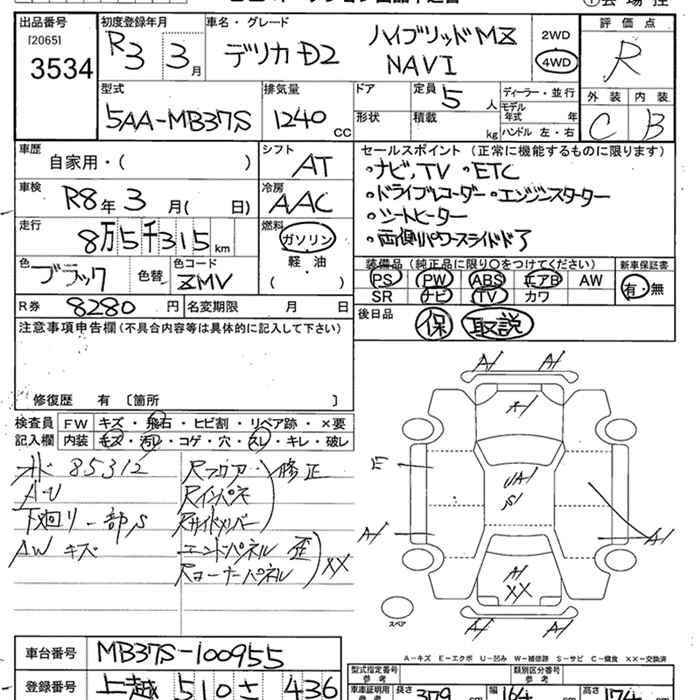 出品番号
[2065]
3534
初度登録年月
R3 3月
車名・グレード
デリカD2 ハイブリッドMZ
NAVI
2WD
4WD
評価点
R
外装 内装
C B
型式
5AA-MB37S
排気量
1240 cc
ドア
形状
定員 5 人
積載 kg
ディーラー・並行
モデル年式 年
ハンドル 左・右
車歴
自家用・( )
シフト
AT
車検
R8年3月( 日)
冷房
AAC
走行
8万5千315km
燃料
ガソリン
軽・油
( )
色
ブラック
色替
色コード
ZMV
R券 8280円
名変期限 月 日
セールスポイント (正常に機能するものに限ります)
・ナビ,TV ・ETC
・ドライブレコーダー ・エンジンスターター
・シートヒーター
・両側パワースライドドア
装備品 (純正品に限り○をつけてください)
PS PW ABS エアB AW
SR ナビ TV カワ
新車保証書
有・無
後日品
保 取説
注意事項申告欄 (不具合内容等は具体的に記入して下さい)
修復歴 有 〔箇所 〕
検査員記入欄
FW キズ・飛石・ヒビ割・リペア跡・×要
内装 キズ・汚レ・コゲ・穴・スレ・キレ・破レ
85312
A・U
下廻り一部S
AW キズ
Rフロア
Rインパネ
Rサイドメンバー
修正
エンドパネル 歪
Rコーナーパネル
XX
A1 A1
A1
E
UA1
S1
A1
A1
A1
XX
A1 A1
スペア
A-キズ E-エクボ U-凹み W-補修跡 S-サビ C-腐食 XX-交換済
車台番号 MB37S-100955
登録番号 上越 510 さ 436
型式指定番号
参考
類別区分番号
参考
車庫証明用
参考
長さ 379 cm
幅 164 cm
高さ 174 cm